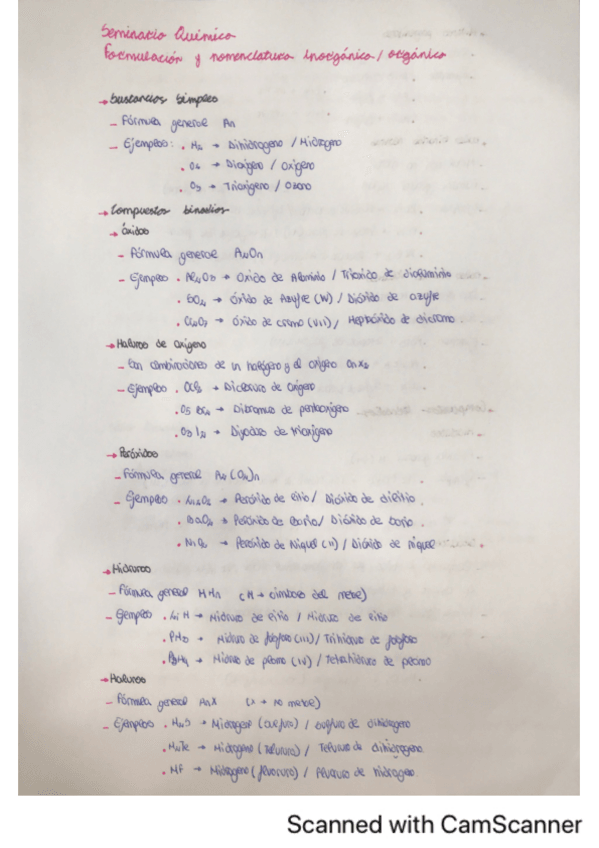 Seminario Química
Formulación y nomenclatura inorgánica / orgánica
→ Sustancias simples
– Fórmula general An
– Ejemplos: . H2 → Dihidrógeno / Hidrógeno
. O2 → Dioxígeno / Oxígeno
. O3 → Trioxígeno / Ozono
→ Compuestos binarios
→ Óxidos
– Fórmula general A2On
– Ejemplos . Al2O3 → Óxido de Aluminio / Trióxido de dialuminio
. SO2 → Óxido de Azufre (IV) / Dióxido de azufre
. Cr2O7 → Óxido de cromo (VII) / Heptóxido de dicromo
→ Haluros de oxígeno
– Son combinaciones de un halógeno y el oxígeno OnX2
– Ejemplos . OCl2 → Dicloruro de oxígeno
. O5Br2 → Dibromuro de pentaoxígeno
. O3I2 → Diyoduro de trioxígeno
→ Peróxidos
– Fórmula general A2(O2)n
– Ejemplos . Li2O2 → Peróxido de litio / Dióxido de dilitio
. BaO2 → Peróxido de Bario / Dióxido de bario
. NiO2 → Peróxido de Níquel (II) / Dióxido de níquel
→ Hidruros
– Fórmula general MHn (M → símbolo del metal)
– Ejemplos . LiH → Hidruro de litio / Hidruro de litio
. PH3 → Hidruro de fósforo (III) / Trihidruro de fósforo
. PbH4 → Hidruro de plomo (IV) / Tetrahidruro de plomo
→ Haluros
– Fórmula general AnX (X → no metal)
– Ejemplos . H2S → Hidrógeno (sulfuro) / sulfuro de dihidrógeno
. H2Te → Hidrógeno (Telururo) / Telururo de dihidrógeno
. HF → Hidrógeno (fluoruro) / Fluoruro de hidrógeno
Scanned with CamScanner